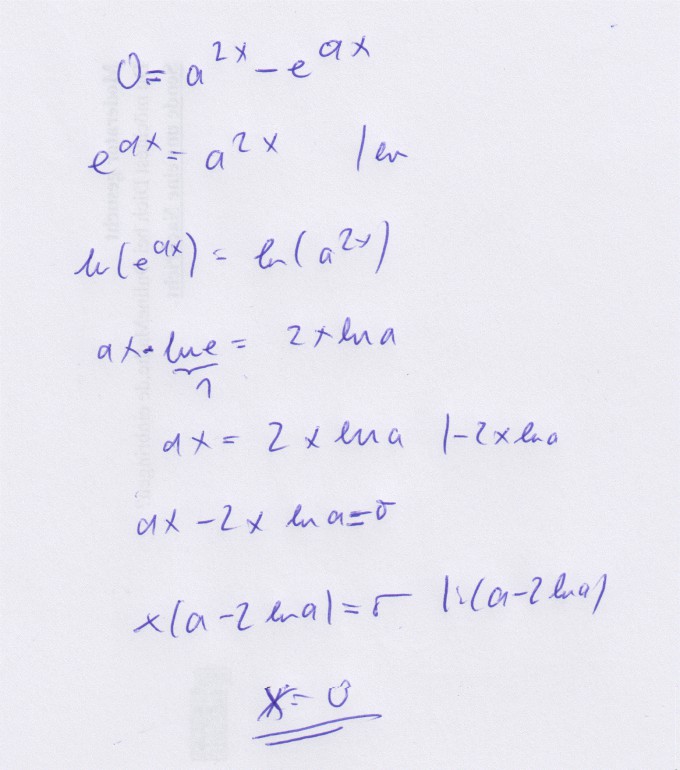 0 = a^{2x} - e^{ax}
e^{ax} = a^{2x} | ln
ln(e^{ax}) = ln(a^{2x})
ax · ln e = 2x ln a
1
ax = 2x ln a | -2x ln a
ax - 2x ln a = 0
x(a - 2 ln a) = 0 | :(a - 2 ln a)
x = 0